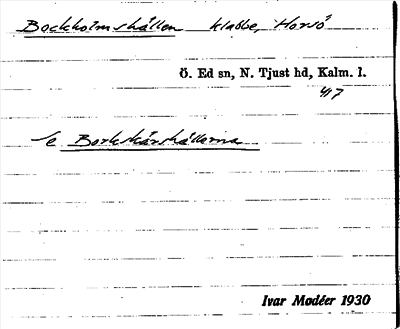 Bockholmshällen klabbe, Horsö
Ö. Ed sn, N. Tjust hd, Kalm. l.
417
Se Borkskärshällarna
Ivar Modéer 1930